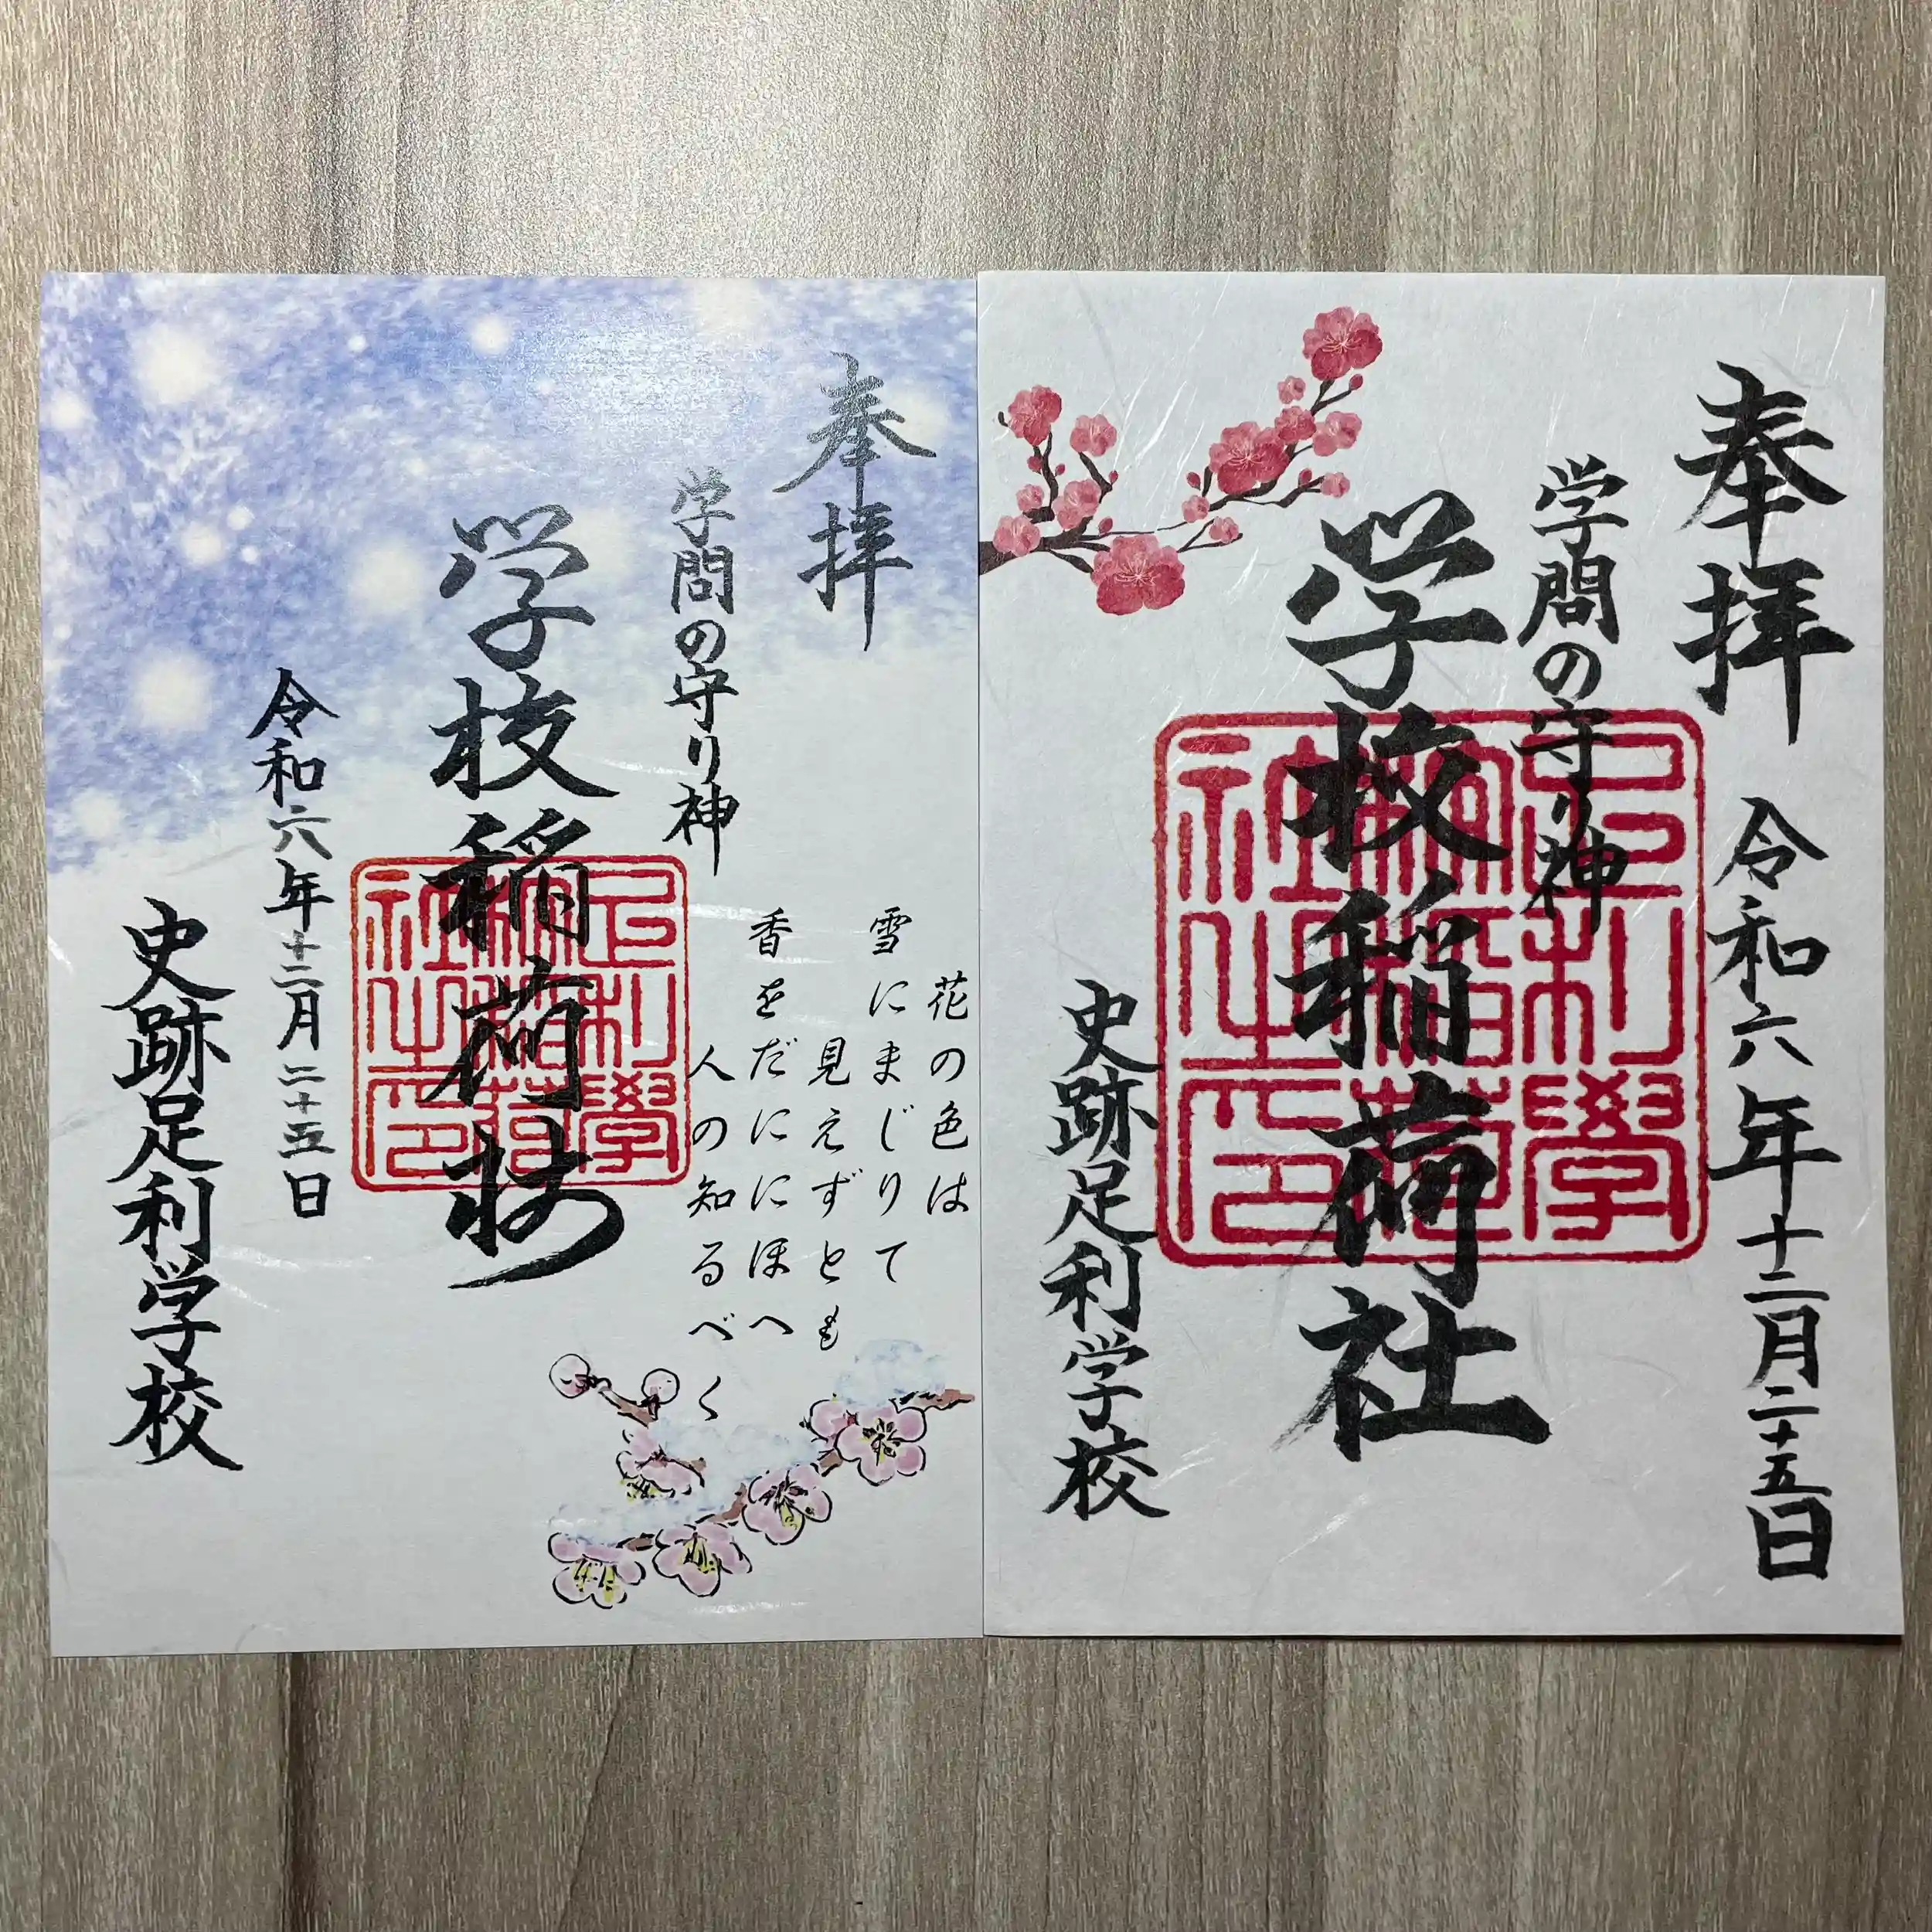 奉拝
学問の守り神
学校稲荷社
令和六年十二月二十五日
史跡足利学校
花の色は
雪にまじりて
見えずとも
香をだににほへ
人の知るべく
奉拝
令和六年十二月二十五日
学問の守り神
学校稲荷社
史跡足利学校